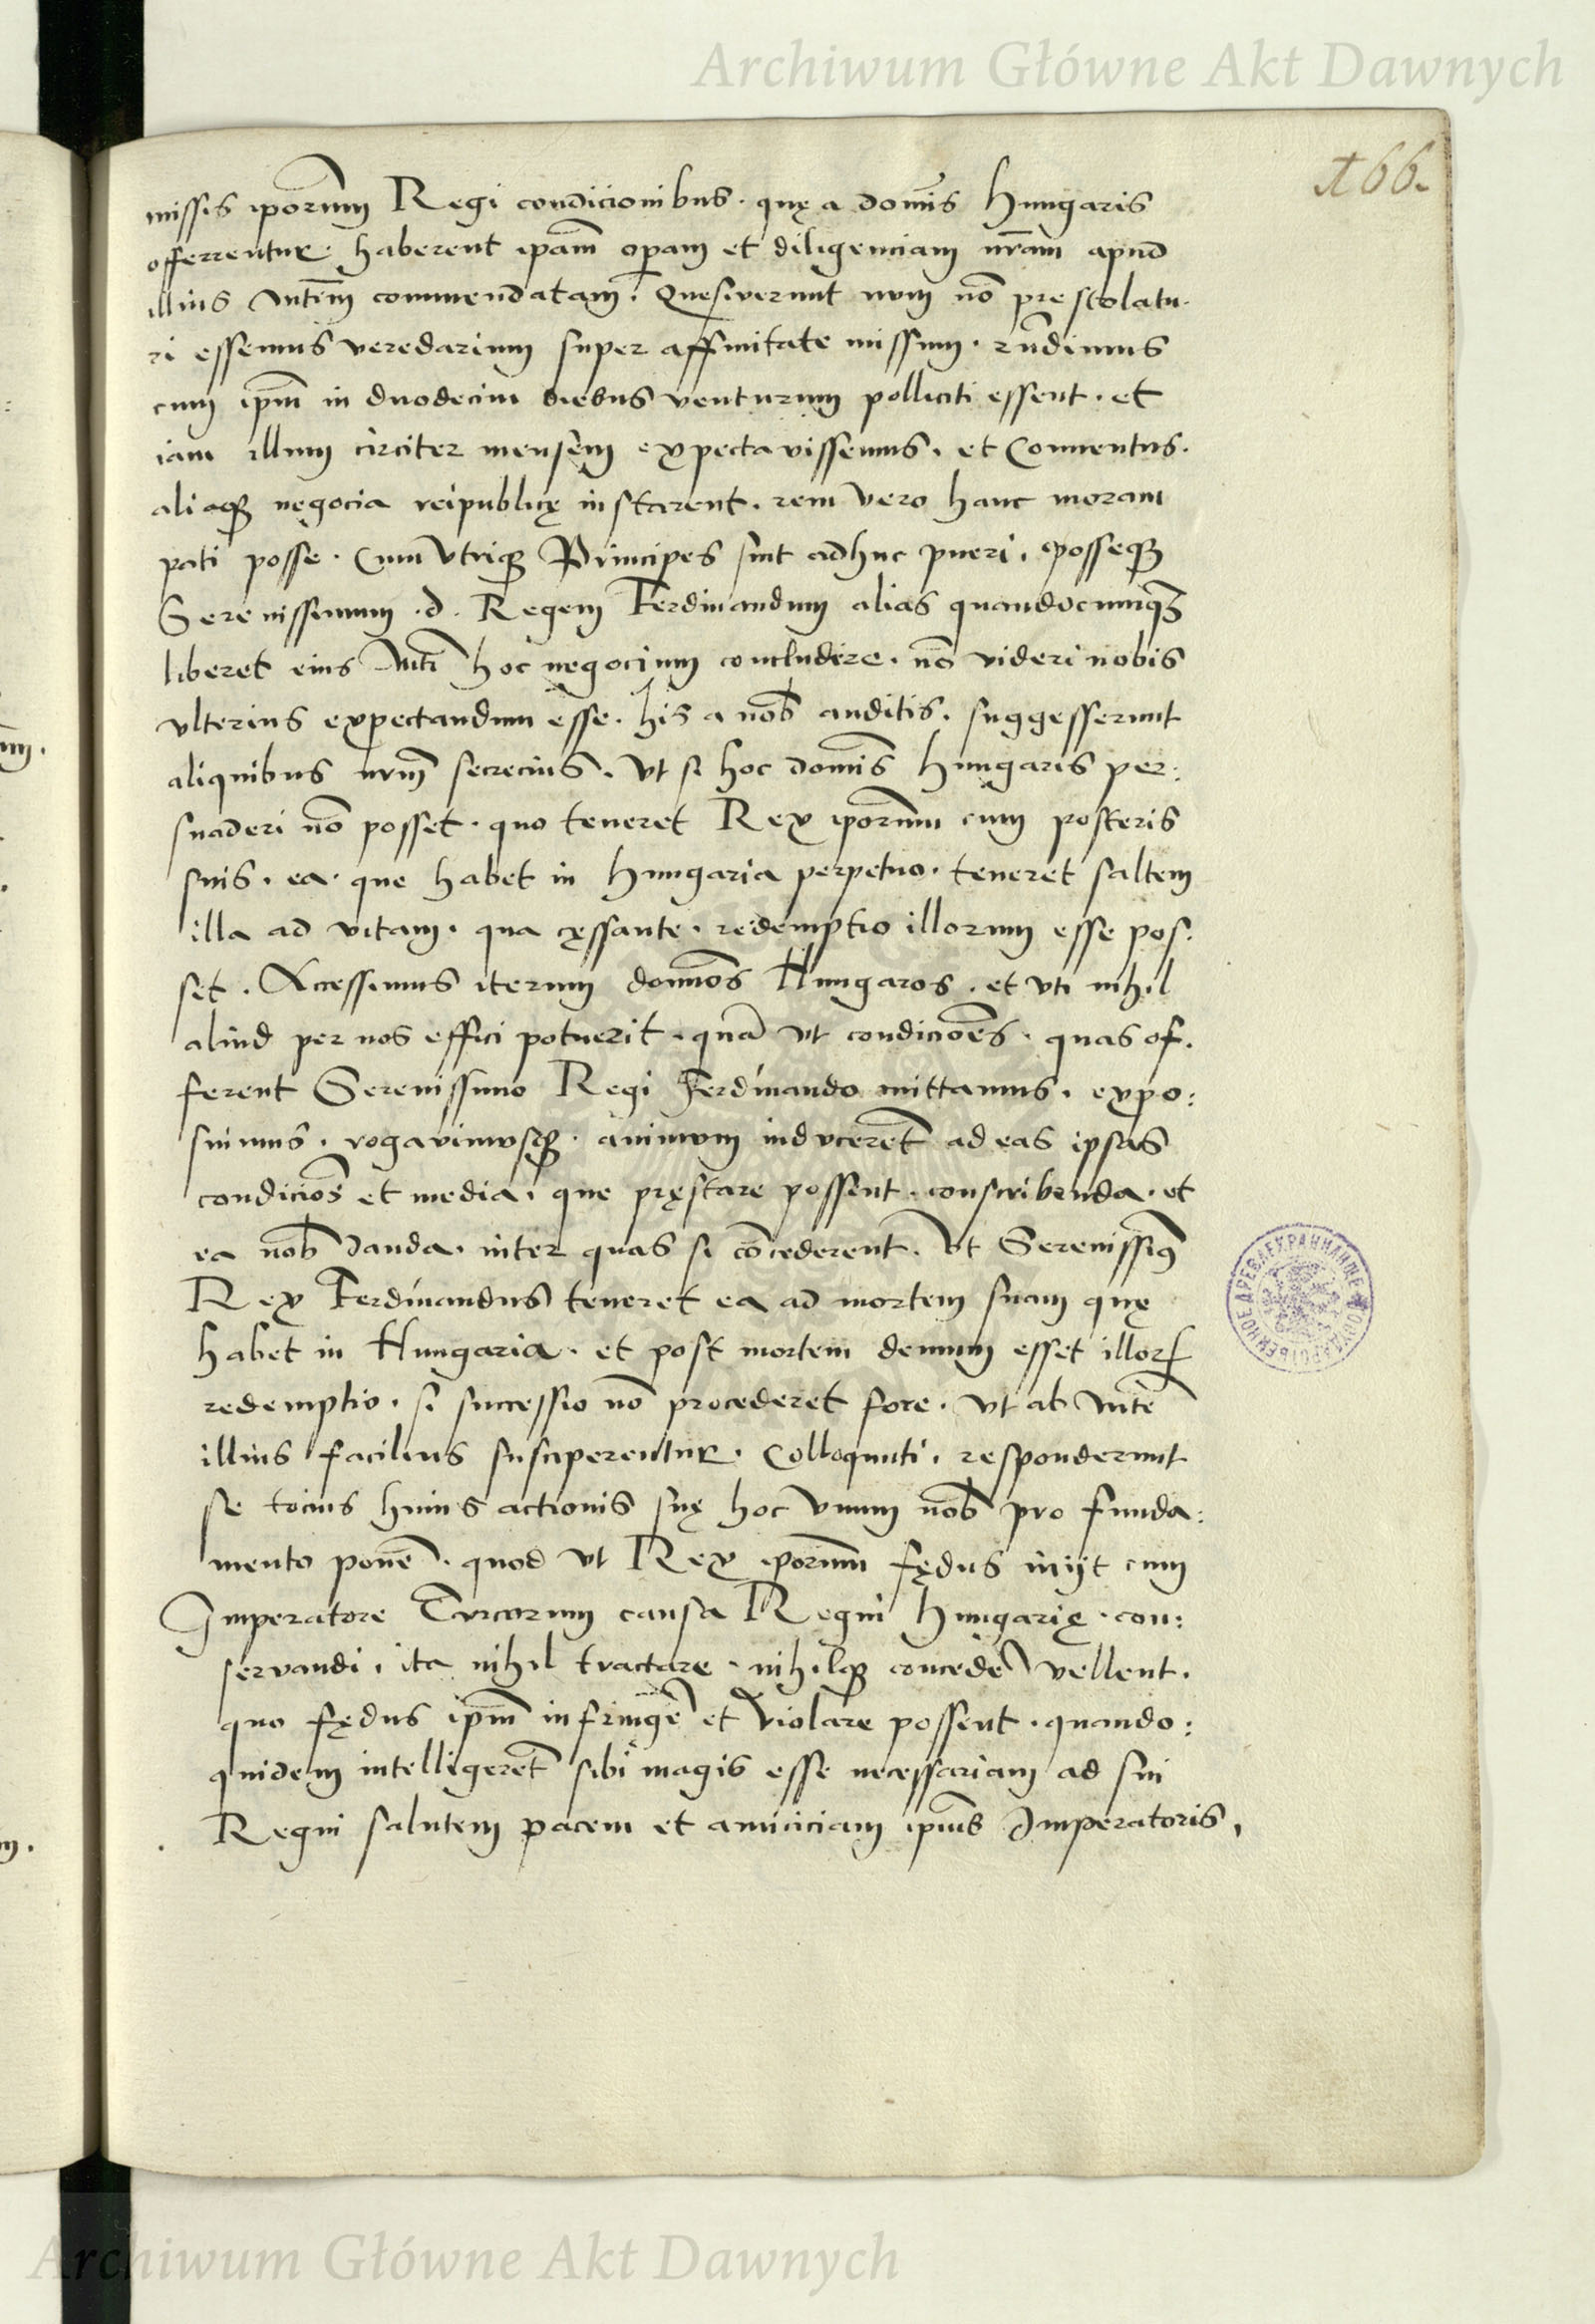 Archiwum Główne Akt Dawnych
166.
missis ipõrum Regi condicionibus · quę a dom̃is Hungaris
offerrentur · haberent ip̃am op̃am et diligenciam nr̃am apud
illius Mtẽm commendatam · Quesiverunt num nõ prestolatu·
ri essemus veredarium super affinitate missum · rñdimus
cum ip̃m in duodecim diebus venturum polliciti essent · et
iam illum circiter mensem expectavissemus · et Conventus ·
aliaq₃ negocia reipublicę instarent · rem vero hanc moram
pati posse · Cum Utriq₃ Principes sint adhuc pueri · posseq₃
Serenissimum · d · Regem Ferdinandum alias quandocumq₃
liberet eius Mti hoc negocium concludere · nõ videri nobis
ulterius expectandum esse · his a nob̃ auditis · suggesserunt
aliquibus nr̃um secrecius · Ut si hoc dom̃is Hungaris per:
suaderi nõ posset · quo teneret Rex ipõrum cum posteris
suis · ea · que habet in Hungaria perpetuo · teneret saltem
illa ad vitam · qua cęssante · redemptio illorum esse pos·
set · Accessimus iterum domiõs Hungaros · et uti nihil
aliud per nos effici potuerit · quã ut condiciões · quas of·
ferent Serenissimo Regi Ferdinando mittamus · expo:
suimus · rogavimusq₃ · animum inducerẽt ad eas ipsas
condiciões et media · que pręstare possent · conscribenda · et
ea nob̃ danda · inter quas si cõcederent · Ut Serenissim9
Rex Ferdinandus teneret ea ad mortem suam quę
habet in Hungaria · et post mortem demum esset illorꝝ
redemptio · si successio nõ procederet fore · ut ab Mte
illius facilius susciperentur · Colloquuti · responderunt
se tocius huius actionis suę hoc Unum nob̃ pro funda:
mento ponẽ · quod ut Rex ipõrum fędus iniit cum
Imperatore Turcorum causa Regni Hungarię · con:
servandi · ita nihil tractare · nihilq₃ concedẽ vellent ·
quo fędus ip̃m infringẽ et violare possent · quando:
quidem intelligerẽt sibi magis esse necessariam ad sui
Regni salutem pacem et amiciciam ip̃ius Imperatoris,
Archiwum Główne Akt Dawnych